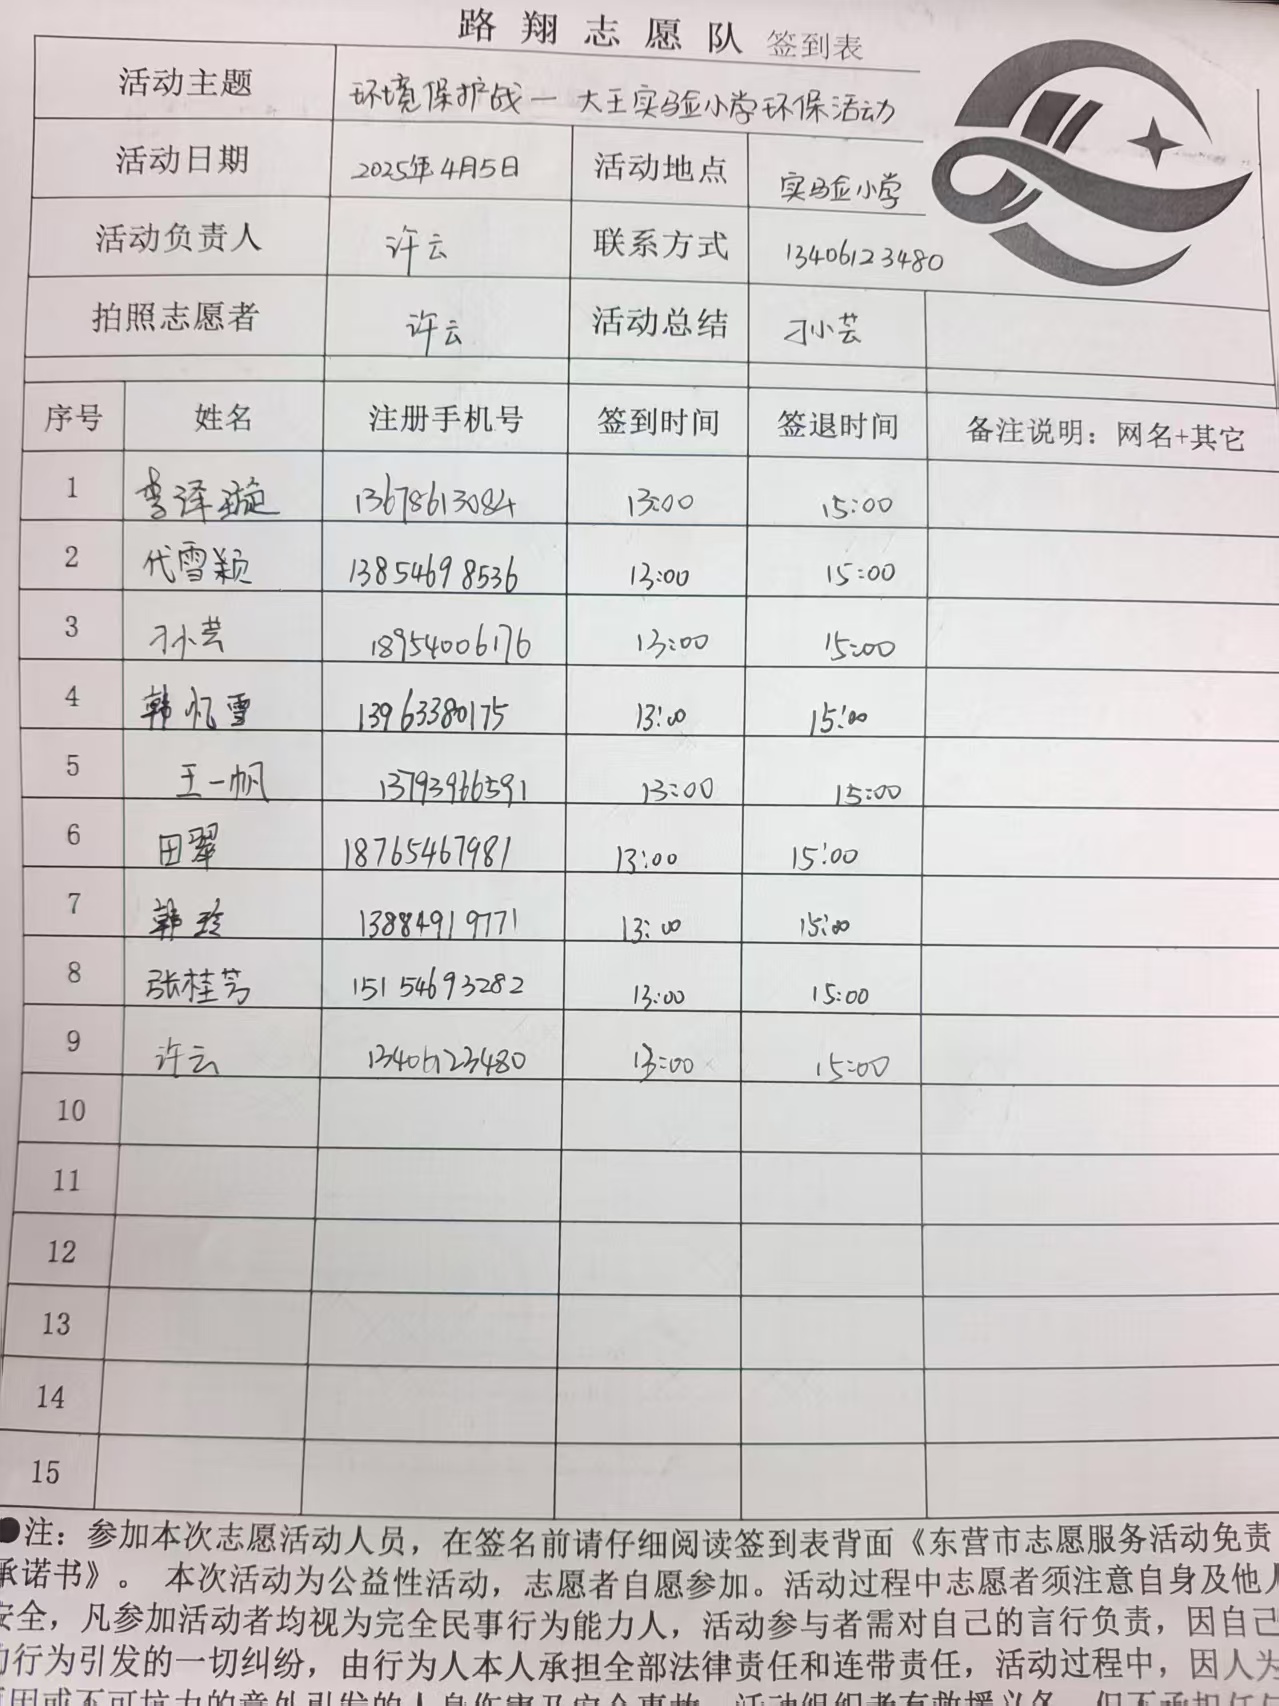 路翔志愿队 签到表
活动主题 环境保护战一 大王实验小学环保活动
活动日期 2025年4月5日 活动地点 实验小学
活动负责人 许云 联系方式 13406123480
拍照志愿者 许云 活动总结 刁小芸
序号 姓名 注册手机号 签到时间 签退时间 备注说明：网名+其它
1 李泽璇 13678613084 13:00 15:00
2 代雪颖 13854698536 13:00 15:00
3 刁小芸 18954006176 13:00 15:00
4 韩忆雪 13963380175 13:00 15:00
5 王一帆 13793966591 13:00 15:00
6 田翠 18765467981 13:00 15:00
7 韩玲 13884919771 13:00 15:00
8 张桂芳 15154693282 13:00 15:00
9 许云 13406123480 13:00 15:00
10
11
12
13
14
15
●注：参加本次志愿活动人员，在签名前请仔细阅读签到表背面《东营市志愿服务活动免责
承诺书》。 本次活动为公益性活动，志愿者自愿参加。活动过程中志愿者须注意自身及他人
安全，凡参加活动者均视为完全民事行为能力人，活动参与者需对自己的言行负责，因自己
的行为引发的一切纠纷，由行为人本人承担全部法律责任和连带责任，活动过程中，因人为
原因或不可抗力的意外引发的人身伤害及安全事故，活动组织者有救援义务，但不承担任何